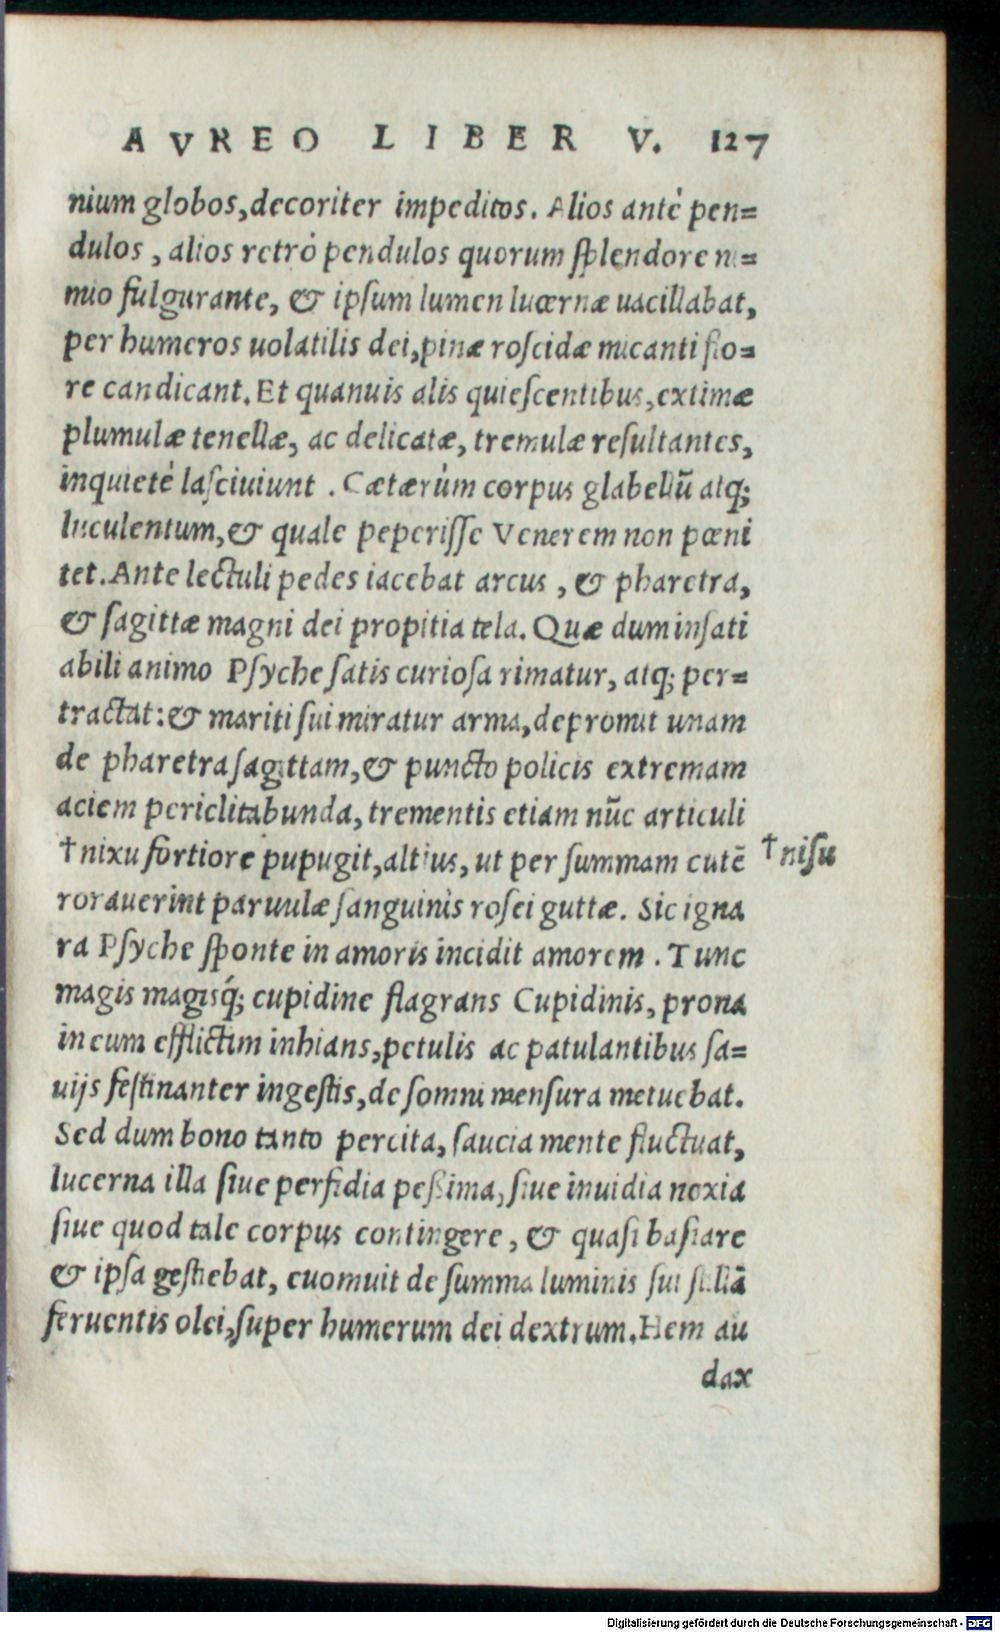 AVREO LIBER V. 127
nium globos, decoriter impeditos. Alios antè pen=
dulos, alios retrò pendulos quorum ſplendore ni=
mio fulgurante, & ipſum lumen lucernæ uacillabat,
per humeros uolatilis dei, pinæ roſcidæ micanti flo=
re candicant. Et quanuis alis quieſcentibus, extimæ
plumulæ tenellæ, ac delicatæ, tremulæ reſultantes,
inquietè laſciuiunt. Cætærùm corpus glabellũ atq;
luculentum, & quale peperiſſe Venerem non pœni
tet. Ante lectuli pedes iacebat arcus, & pharetra,
& ſagittæ magni dei propitia tela. Quæ dum inſati
abili animo Pſyche ſatis curioſa rimatur, atq; per=
tractat: & mariti ſui miratur arma, depromit unam
de pharetra ſagittam, & puncto policis extremam
aciem periclitabunda, trementis etiam nũc articuli
†nixu fortiore pupugit, altius, ut per ſummam cutẽ †niſu
rorauerint paruulæ ſanguinis roſei guttæ. Sic igna
ra Pſyche ſponte in amoris incidit amorem. Tunc
magis magisq́; cupidine flagrans Cupidinis, prona
in eum efflictim inhians, petulis ac patulantibus ſa=
uijs feſtinanter ingeſtis, de ſomni menſura metuebat.
Sed dum bono tanto percita, ſaucia mente fluctuat,
lucerna illa ſiue perfidia peßima, ſiue inuidia noxia
ſiue quod tale corpus contingere, & quaſi baſiare
& ipſa geſtiebat, euomuit de ſumma luminis ſui ſtillã
feruentis olei, ſuper humerum dei dextrum. Hem au
dax
Digitalisierung gefördert durch die Deutsche Forschungsgemeinschaft - DFG